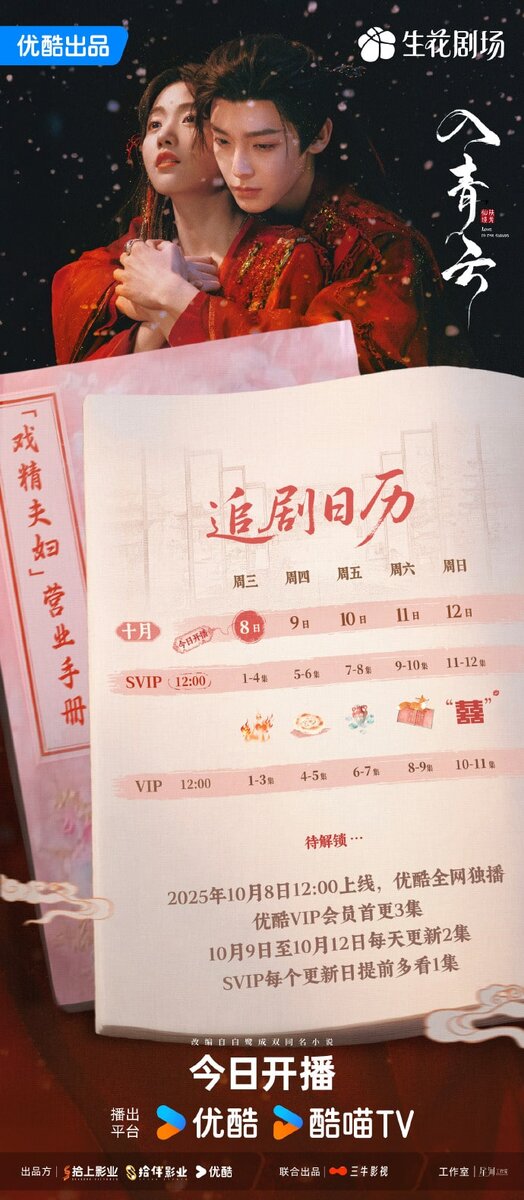 优酷出品
生花剧场
入青云
Love in the clouds
「戏精夫妇」营业手册
追剧日历
周三 周四 周五 周六 周日
十月 今日开播 8日 9日 10日 11日 12日
SVIP 12:00 1-4集 5-6集 7-8集 9-10集 11-12集
“囍”
VIP 12:00 1-3集 4-5集 6-7集 8-9集 10-11集
待解锁…
2025年10月8日12:00上线，优酷全网独播
优酷VIP会员首更3集
10月9日至10月12日每天更新2集
SVIP每个更新日提前多看1集
改编自白鹭成双同名小说
今日开播
播出平台 优酷 酷喵TV
出品方 拾上影业 拾伴影业 优酷 联合出品 三牛影视 工作室